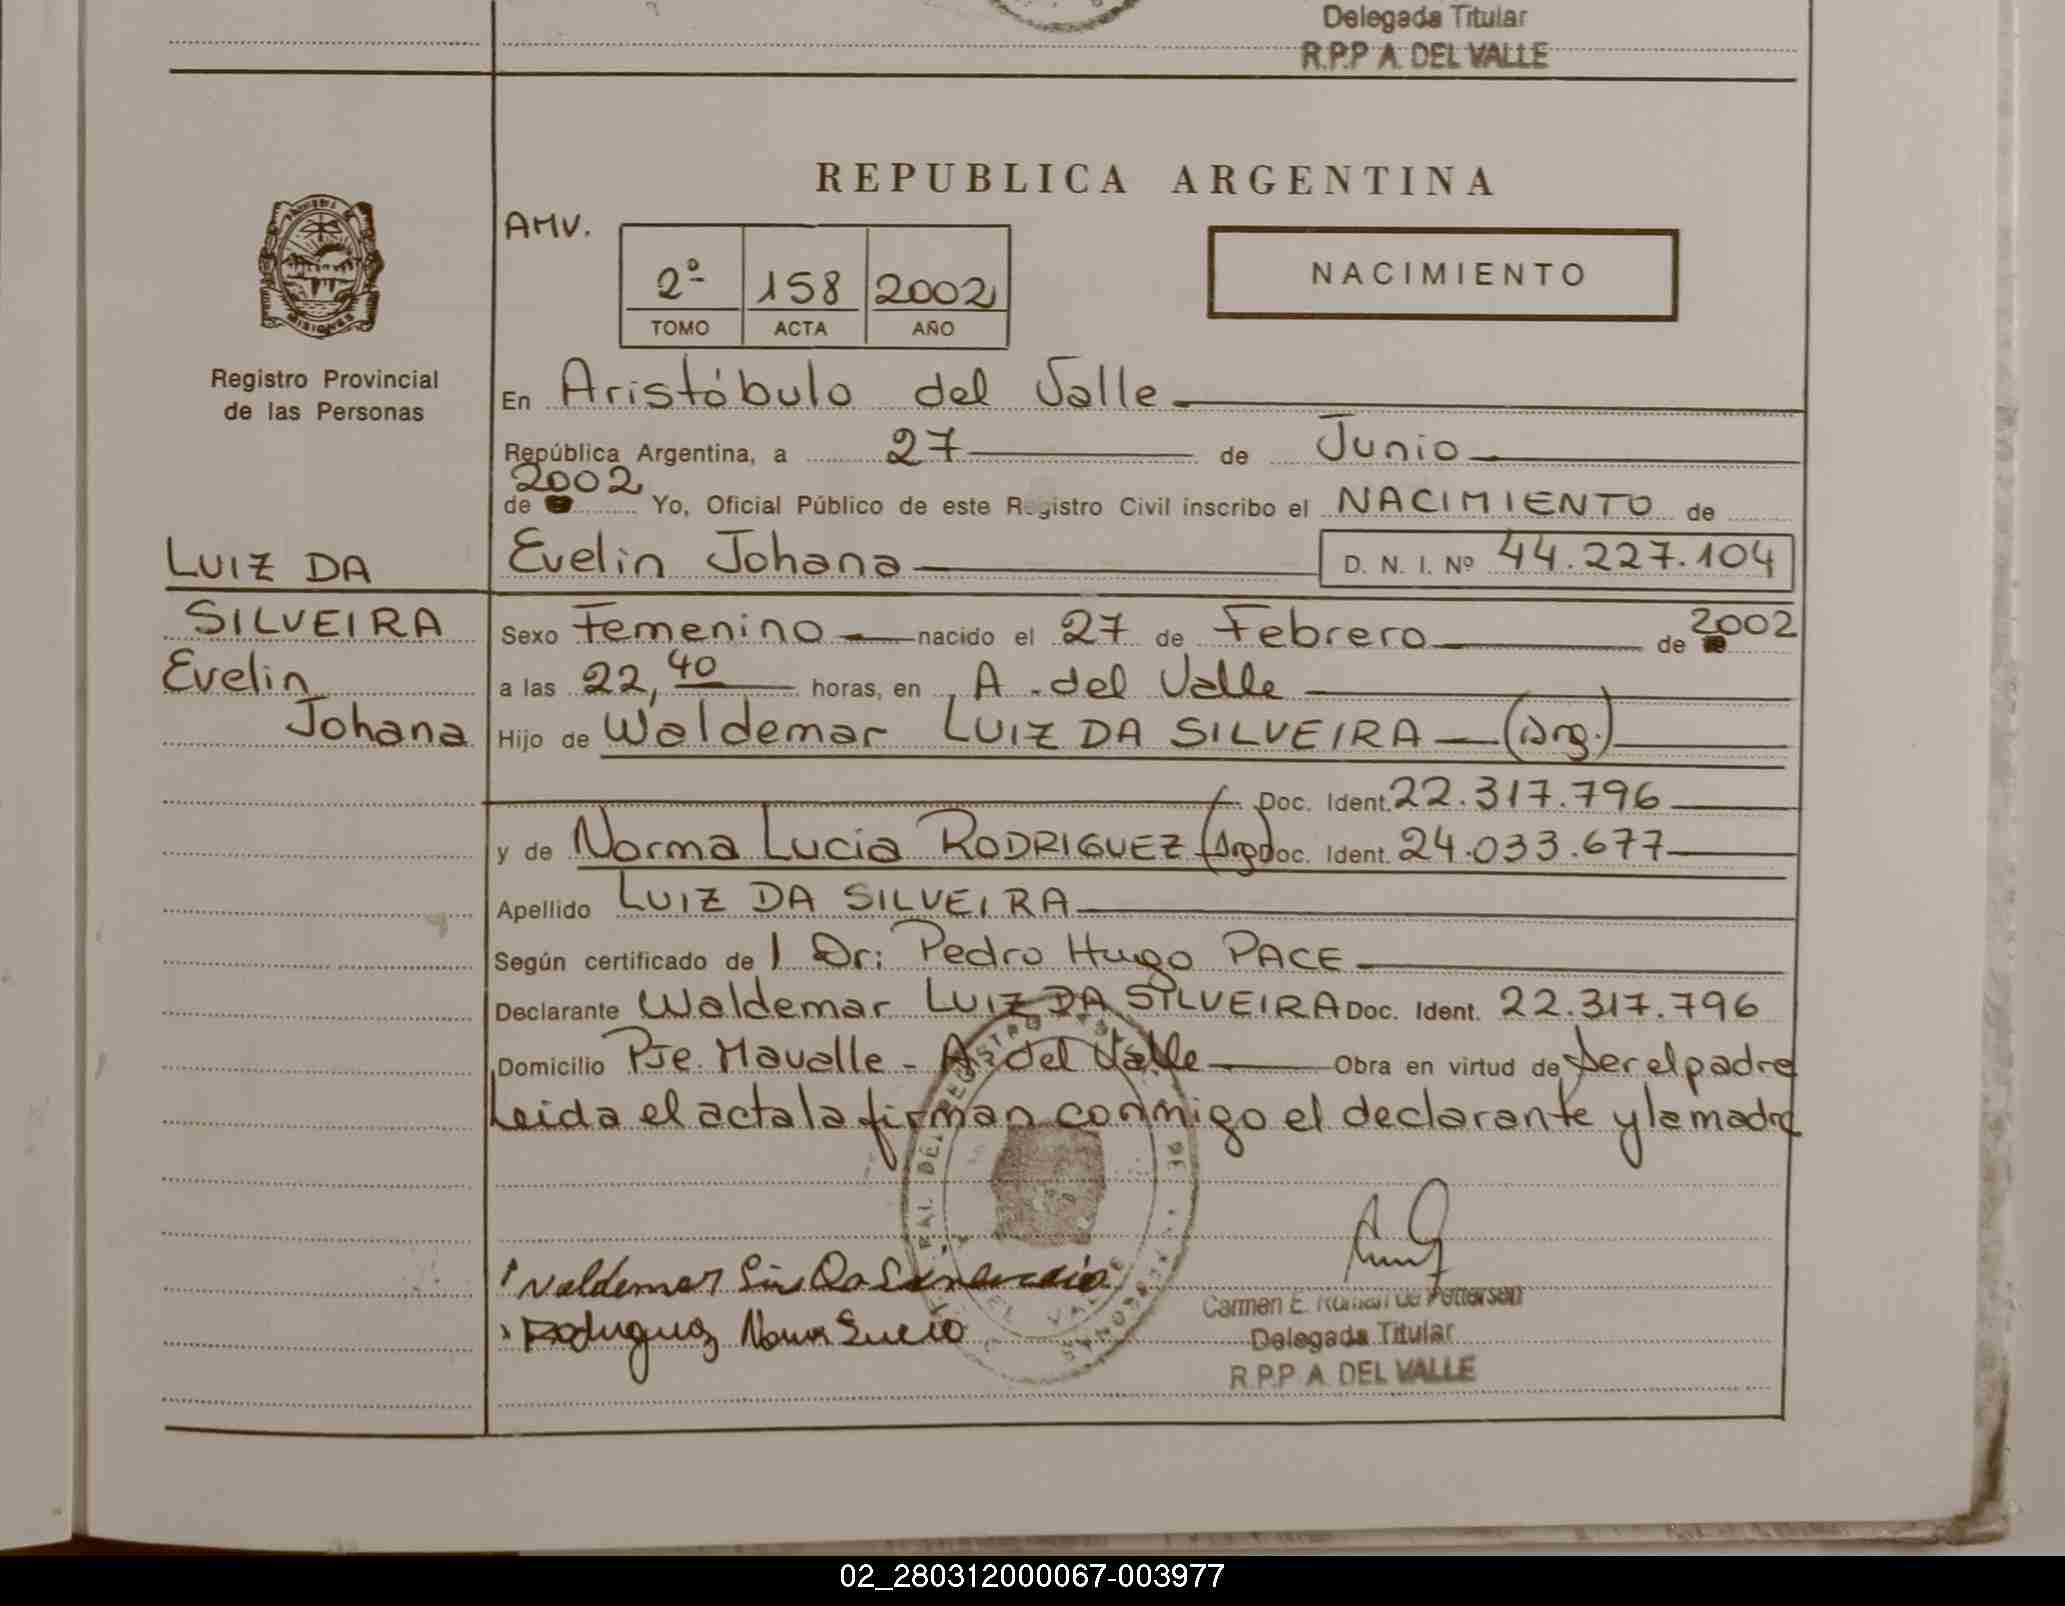 Delegada Titular
R.P.P A. DEL VALLE
REPUBLICA ARGENTINA
AMV.
2º 158 2002
TOMO ACTA AÑO
NACIMIENTO
MISIONES
Registro Provincial
de las Personas
En Aristóbulo del Valle
República Argentina, a 27 de Junio
2002
de Yo, Oficial Público de este Registro Civil inscribo el NACIMIENTO de
LUIZ DA
SILVEIRA
Evelin
Johana
Evelin Johana D. N. I. Nº 44.227.104
Sexo Femenino nacido el 27 de Febrero de 2002
a las 22,40 horas, en A. del Valle
Hijo de Waldemar LUIZ DA SILVEIRA (Arg.)
Doc. Ident. 22.317.796
y de Norma Lucia RODRIGUEZ (Arg) Doc. Ident. 24.033.677
Apellido LUIZ DA SILVEIRA
Según certificado de l Dr: Pedro Hugo PACE
Declarante Waldemar LUIZ DA SILVEIRA Doc. Ident. 22.317.796
Domicilio Pje. Mavalle - A. del Valle Obra en virtud de ser el padre
Leida el acta la firman conmigo el declarante y la madre
Valdemar
Rodriguez Norma Lucia
Carmen E. Roman de Pettersen
Delegada Titular
R.P.P A. DEL VALLE
02_280312000067-003977